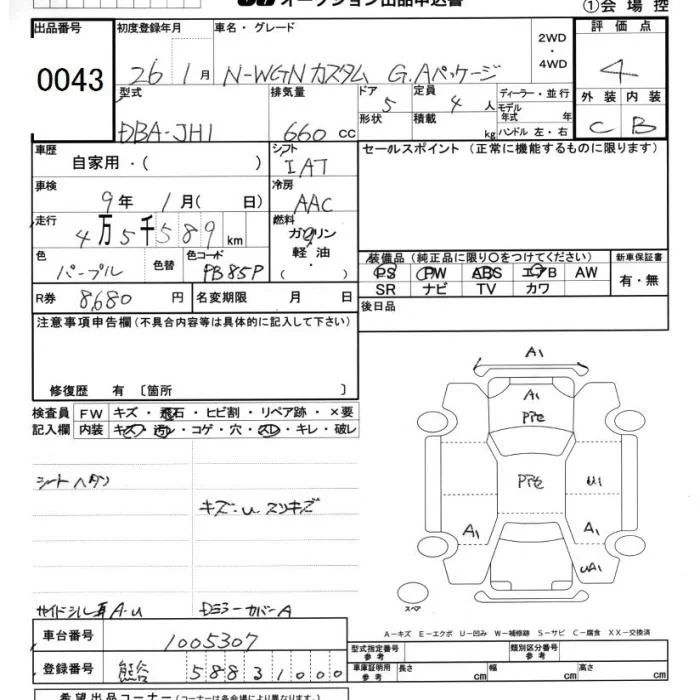 オークション出品申込書
①会場控
出品番号 0043
初度登録年月 26 1月
車名・グレード N-WGN カスタム G.Aパッケージ
2WD・4WD
評価点 4
外装 C 内装 B
型式 DBA-JH1
排気量 660 cc
ドア 5
形状
定員 4 人
積載 kg
ディーラー・並行
モデル年式 年
ハンドル 左・右
車歴 自家用・( )
シフト IAT
セールスポイント (正常に機能するものに限ります)
車検 9年 1月(日)
冷房 AAC
走行 4万5千589 km
燃料 ガソリン
軽油・
( )
色 パープル
色替
色コード PB85P
装備品 (純正品に限り○をつけてください)
新車保証書
PS PW ABS エアB AW
有・無
SR ナビ TV カワ
R券 8,680 円
名変期限 月 日
後日品
注意事項申告欄 (不具合内容等は具体的に記入して下さい)
修復歴 有 〔箇所 〕
検査員記入欄
FW キズ・飛石・ヒビ割・リペア跡・×要
内装 キズ・汚レ・コゲ・穴・スレ・キレ・破レ
シートヘタリ
キズ・U スリキズ
A-U
ドミラーカバーA
A1
A1
Pアセ
Pアセ
U1
A1
A1
UA1
スペア
A-キズ E-エクボ U-凹み W-補修跡 S-サビ C-腐食 XX-交換済
車台番号 1005307
登録番号 熊谷 588 31000
型式指定番号 参考
類別区分番号 参考
車庫証明用 参考 長さ cm 幅 cm 高さ cm
希望出品コーナー (コーナーは各会場により異なります。)